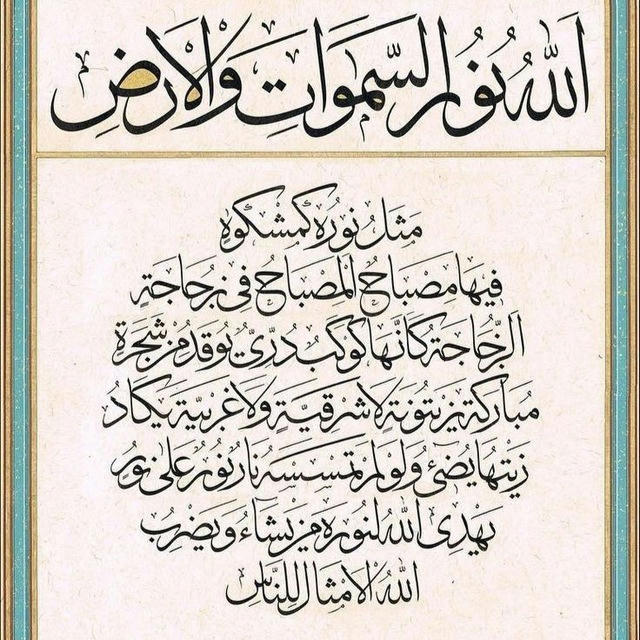 اَللهُ نُورُ السَّمٰوَاتِ وَالْاَرْضِ
مَثَلُ نُورِهِ كَمِشْكٰوةٍ
فِيهَا مِصْبَاحٌ اَلْمِصْبَاحُ فِى زُجَاجَةٍ
اَلزُّجَاجَةُ كَاَنَّهَا كَوْكَبٌ دُرِّىٌّ يُوقَدُ مِنْ شَجَرَةٍ
مُبَارَكَةٍ زَيْتُونَةٍ لَا شَرْقِيَّةٍ وَلَا غَرْبِيَّةٍ يَكَادُ
زَيْتُهَا يُضِىءُ وَلَوْ لَمْ تَمْسَسْهُ نَارٌ نُورٌ عَلَى نُورٍ
يَهْدِى اللهُ لِنُورِهِ مَنْ يَشَاءُ وَيَضْرِبُ
اللهُ الْاَمْثَالَ لِلنَّاسِ